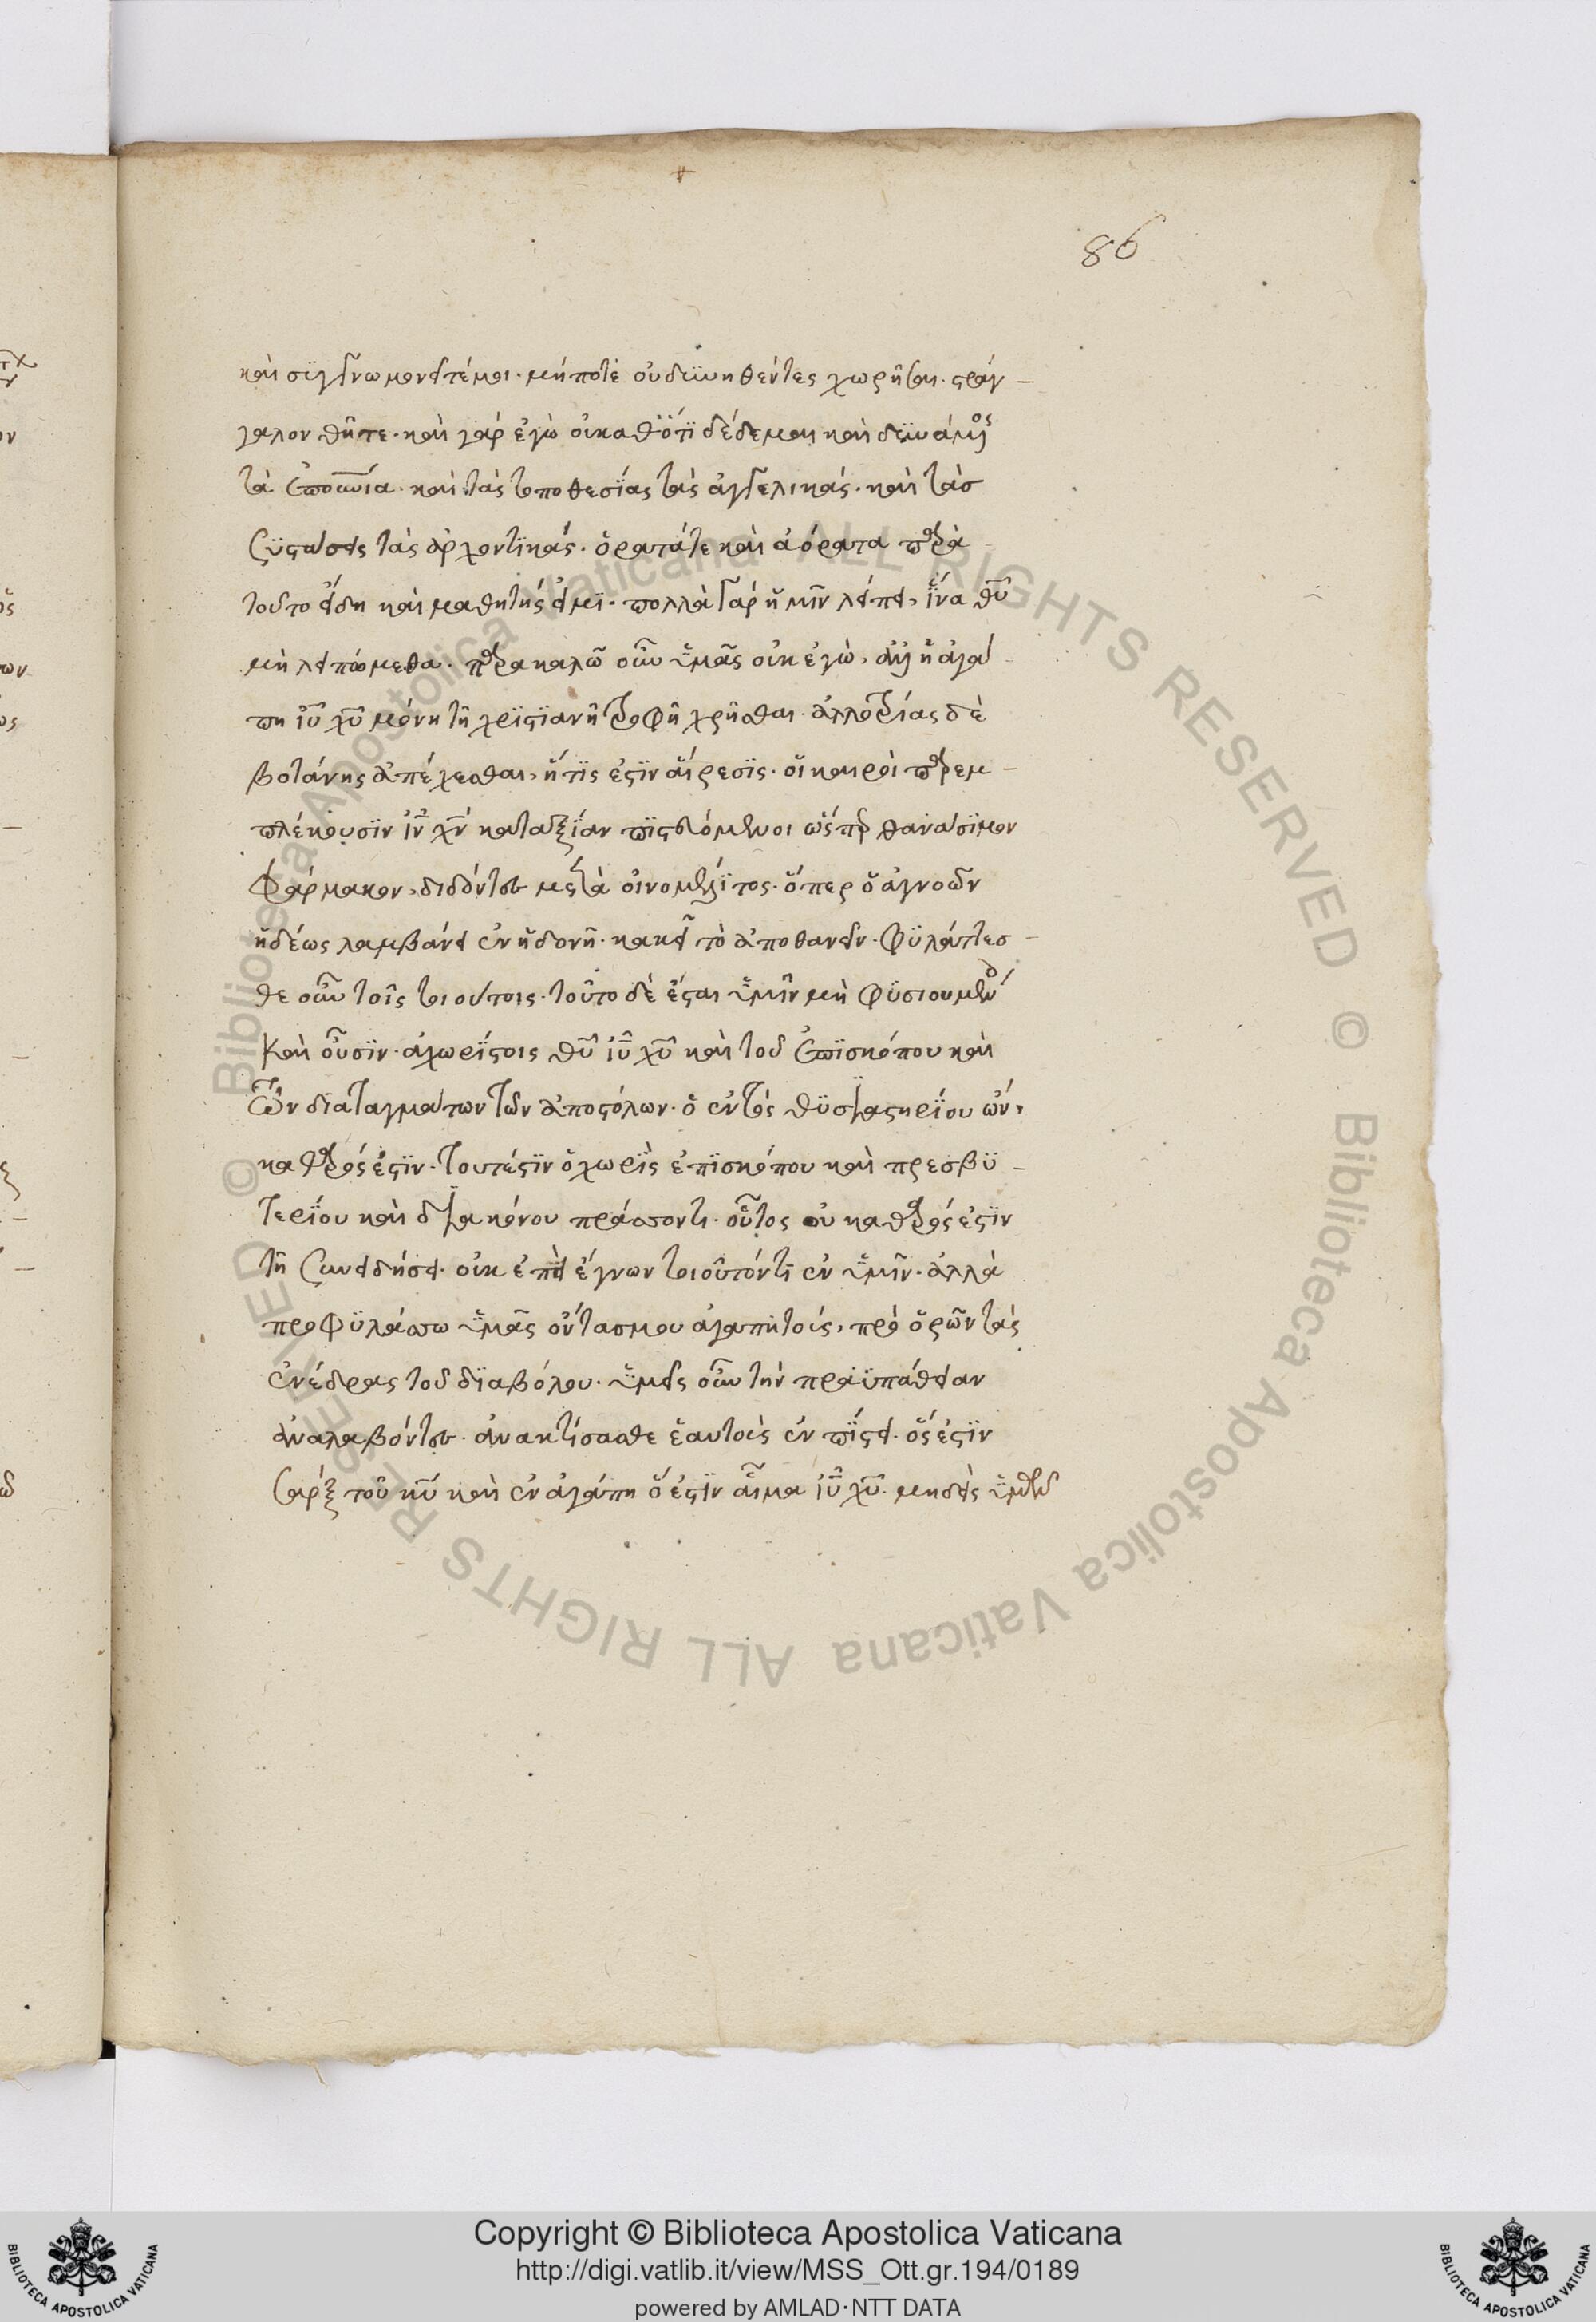 86
καὶ συγγνωμονεῖτέ μοι. μήποτε οὐ δυνηθέντες χωρῆσαι. στραγ-
γαλονθῆτε. καὶ γὰρ ἐγὼ οὐ καθότι δέδεμαι καὶ δυνάμενος
τὰ ἐπουνια. καὶ τὰς τοποθεσίας τὰς ἀγγελικάς. καὶ τὰσ
συστάσεις τὰς ἀρχοντικάς. ὁρατά τε καὶ ἀόρατα παρὰ
τοῦτο ἤδη καὶ μαθητής εἰμι. πολλὰ γὰρ ἡμῖν λείπει, ἵνα θυ
μὴ λειπώμεθα. παρακαλῶ οὖν ὑμᾶς οὐκ ἐγὼ, ἀλλ' ἡ ἀγά
πη ιυ χυ μόνη τῆ χριστιανῆ τροφῆ χρῆσθαι. ἀλλοτρίας δὲ
βοτάνης ἀπέχεσθαι, ἥτις ἐστὶν αἵρεσις. οἳ καιροὶ παρεμ-
πλέκουσιν ιν χν καταξίαν πιστευόμενοι ὥσπερ θανάσιμον
φάρμακον, διδόντες μετὰ οἰνομέλιτος. ὅπερ ὁ ἀγνοῶν
ἡδέως λαμβάνει ἐν ἡδονῆ. κακεῖ τὸ ἀποθανεῖν. φυλάττεσ-
θε οὖν τοῖς τοιούτοις. τοῦτο δὲ ἔσται ὑμῖν μὴ φυσιουμένοις
καὶ οὖσιν. ἀχωρίστοις θυ ιυ χυ καὶ τοῦ ἐπισκόπου καὶ
τῶν διαταγμάτων τῶν ἀποστόλων. ὁ ἐντὸς θυσιαστηρίου ὢν,
καθαρός ἐστιν. τουτέστιν ὁ χωρὶς ἐπισκόπου καὶ πρεσβυ-
τερίου καὶ διακόνου πράσσων τι. οὗτος οὐ καθαρός ἐστιν
τῆ συνειδήσει. οὐκ ἐπεὶ ἔγνων τοιοῦτόν τι ἐν ὑμῖν. ἀλλὰ
προφυλάσσω ὑμᾶς ὄντας μου ἀγαπητούς, προορῶν τὰς
ἐνέδρας τοῦ διαβόλου. ὑμεῖς οὖν τὴν πραϋπάθειαν
ἀναλαβόντες. ἀνακτίσασθε ἑαυτοὺς ἐν πίστει. ὅς ἐστιν
σὰρξ τοῦ κυ καὶ ἐν ἀγάπη ὅ ἐστιν αἷμα ιυ χυ. μηδεὶς ὑμῶν
Copyright © Biblioteca Apostolica Vaticana
http://digi.vatlib.it/view/MSS_Ott.gr.194/0189
powered by AMLAD·NTT DATA